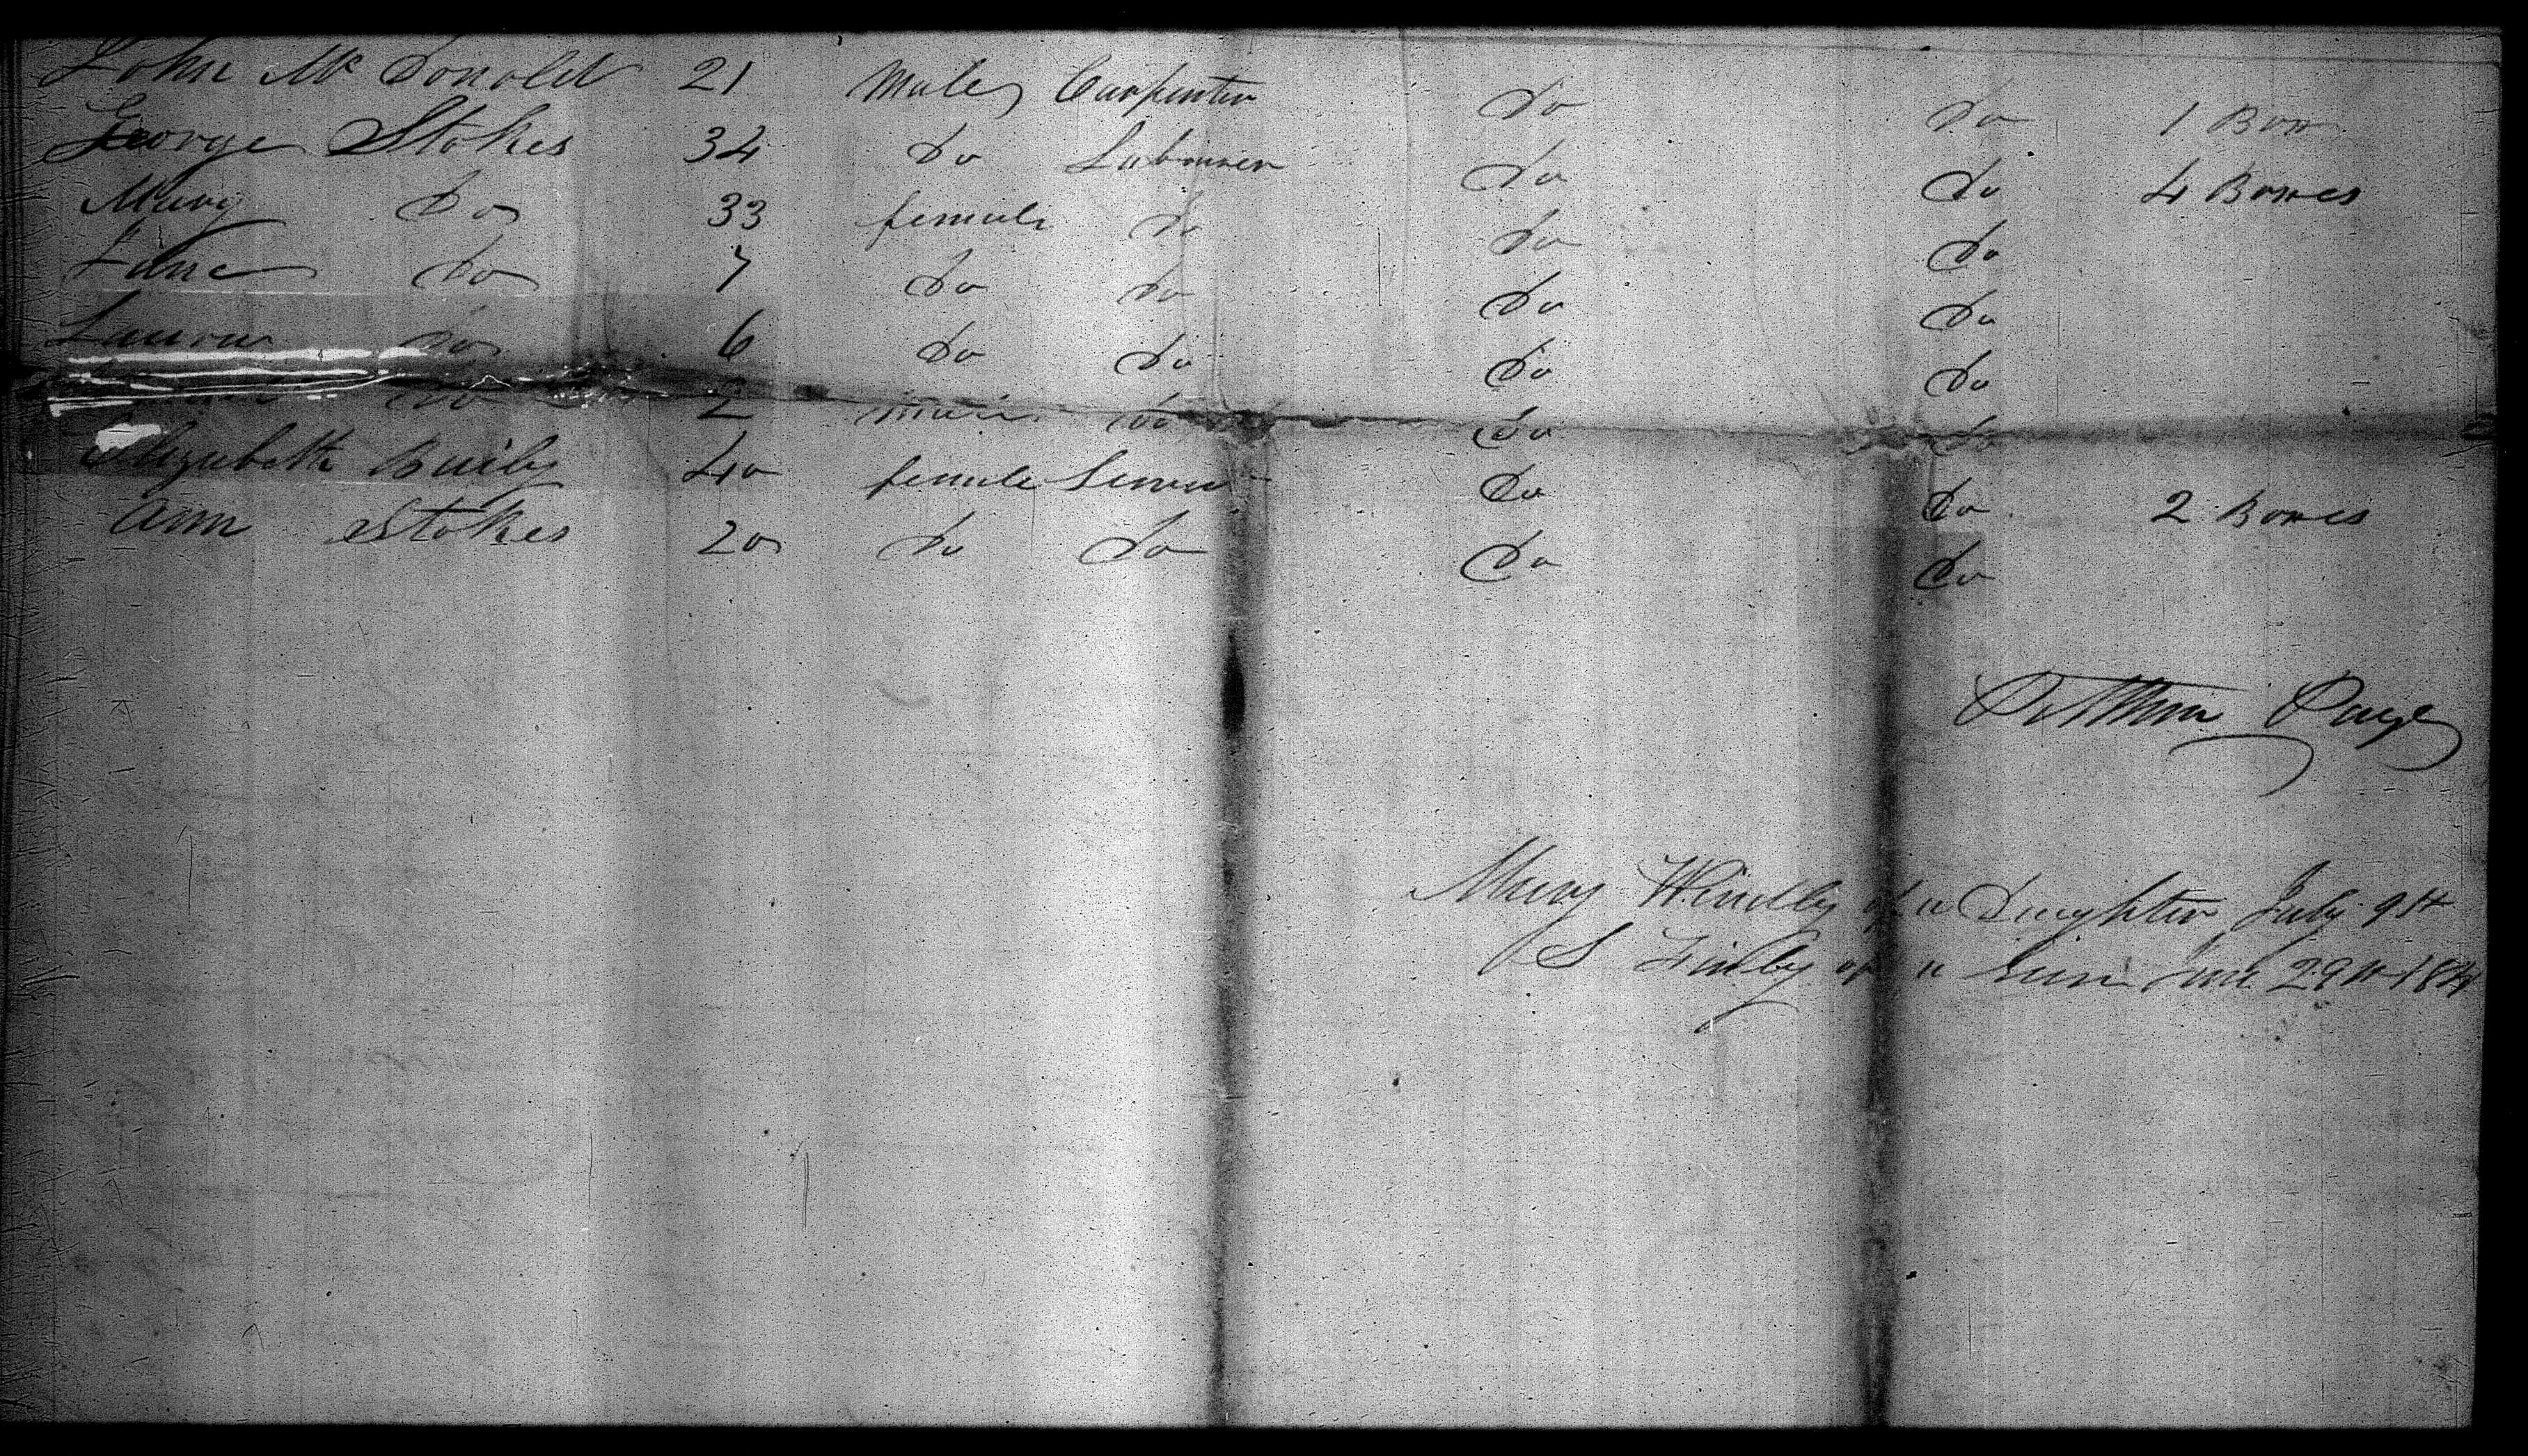 John Mc Donold 21 Male Carpenter Do Do 1 Box
George Stokes 34 Do Labourer Do Do 4 Boxes
Mary Do 33 female Do Do Do
Jane Do 7 Do Do Do Do
Do 6 Do Do Do Do
Do 2 male Do Do Do
Elizabeth Baily 40 female Do Do 2 Boxes
Ann Stokes 20 Do Do Do Do
Page
Mary of a Daughter July 9th
S of a June 29th